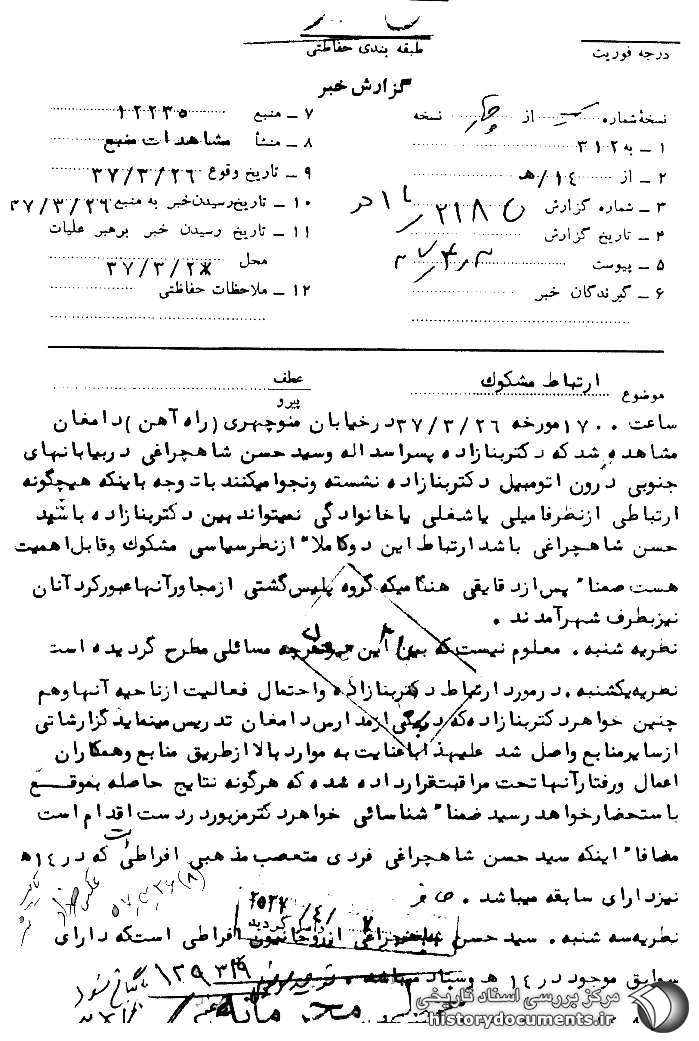 طبقه بندی حفاظتی
درجه فوریت
گزارش خبر
نسخه شماره از چهار نسخه
۱ ـ به ۳۱۲
۲ ـ از ۱۴/ه‍
۳ ـ شماره گزارش
۴ ـ تاریخ گزارش
۵ ـ پیوست
۶ ـ گیرندگان خبر
۷ ـ منبع ۱۲۲۳۵
۸ ـ منشأ مشاهدات منبع
۹ ـ تاریخ وقوع ۳۷/۳/۲۶
۱۰ ـ تاریخ رسیدن خبر به منبع ۳۷/۳/۲۶
۱۱ ـ تاریخ رسیدن خبر برهبر عملیات
محل ۳۷/۳/۲۸
۱۲ ـ ملاحظات حفاظتی
موضوع ارتباط مشکوک
عطف
پیرو
ساعت ۱۷۰۰ مورخه ۳۷/۳/۲۶ درخیابان منوچهری (راه آهن) دامغان
مشاهده شد که دکتربنازاده پسراسداله وسید حسن شاهچراغی دربیابانهای
جنوبی درون اتومبیل دکتربنازاده نشسته ونجوا میکنند باتوجه باینکه هیچگونه
ارتباطی ازنظرفامیلی یاشغلی یاخانوادگی نمیتواند بین دکتربنازاده باسید
حسن شاهچراغی باشد ارتباط این دوکاملا" ازنظرسیاسی مشکوک وقابل اهمیت
هست ضمنا" پس ازدقایقی هنگامیکه گروه پلیس گشتی ازمجاورآنهاعبورکرد آنان
نیزبطرف شهرآمدند .
نظریه شنبه . معلوم نیست که بین این چه مسائلی مطرح گردیده است
نظریه یکشنبه . درمورد ارتباط دکتربنازاده واحتمال فعالیت ازناحیه آنهاوهم
چنین خواهردکتربنازاده که دریکی ازمدارس دامغان تدریس مینماید گزارشاتی
ازسایرمنابع واصل شد علیهذا باعنایت به موارد بالا ازطریق منابع وهمکاران
اعمال ورفتارآنهاتحت مراقبت قرارداده شده که هرگونه نتایج حاصله بموقع
باستحضارخواهد رسید ضمنا" شناسائی خواهردکترمزبورد ردست اقدام است
مضافا" اینکه سید حسن شاهچراغی فردی متعصب مذهبی افراطی که در ۱۴ه‍
نیزدارای سابقه میباشد .
نظریه سه شنبه . سید حسن شاهچراغی ازروحانیون افراطی است که دارای
سوابق موجود در ۱۴ ه‍ وستاد میباشد .
مرکز بررسی اسناد تاریخی
historydocuments.ir